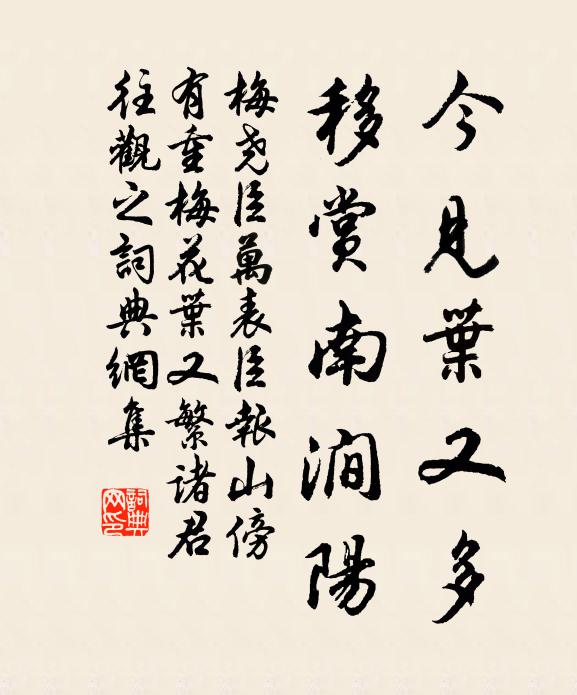 今見葉又多
移賞南澗陽
梅堯臣萬表臣報山傍
有重梅花葉又繁諸君
往觀之詞典網集
詞典網印